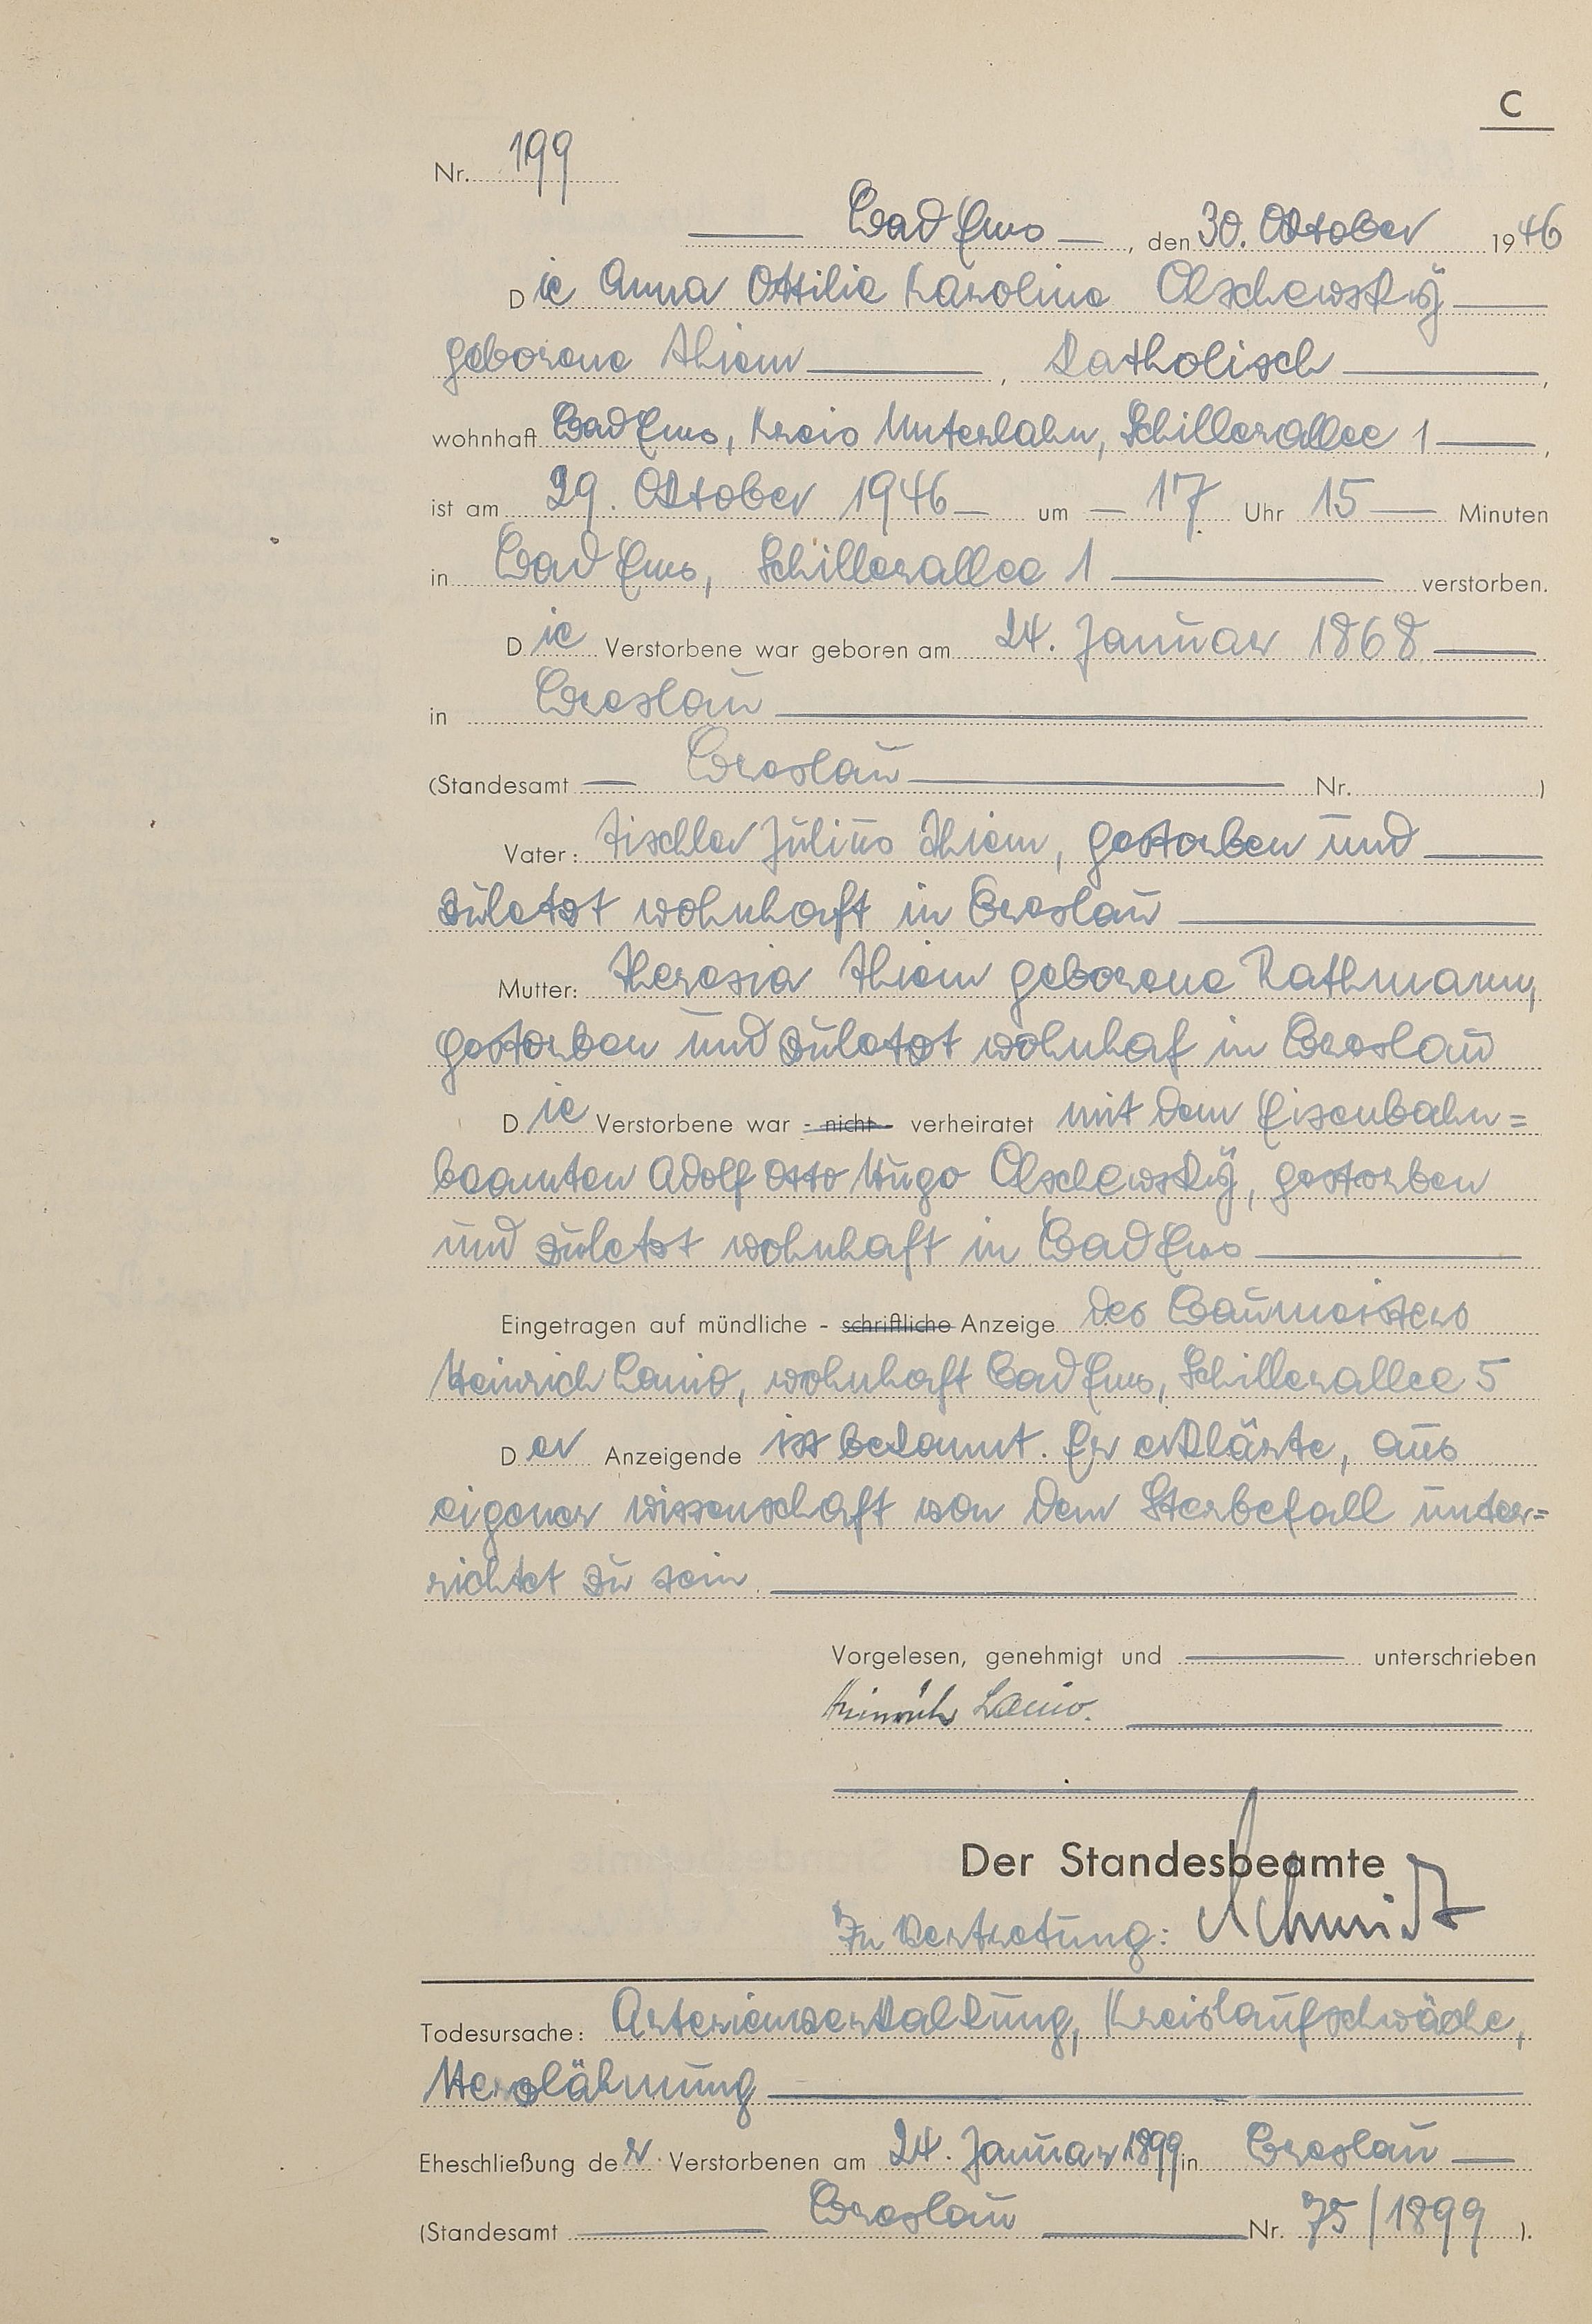 C
Nr. 199
Bad Ems, den 30. Oktober 1946
Die Anna Ottilie Karoline Olschewskÿ
geborene Thiem, katholisch,
wohnhaft Bad Ems, Kreis Unterlahn, Schillerallee 1,
ist am 29. Oktober 1946 um 17 Uhr 15 Minuten
in Bad Ems, Schillerallee 1 verstorben.
Die Verstorbene war geboren am 24. Januar 1868
in Breslau
(Standesamt Breslau Nr. )
Vater: Tischler Julius Thiem, gestorben und
zuletzt wohnhaft in Breslau
Mutter: Theresia Thiem geborene Rathmann,
gestorben und zuletzt wohnhaf in Breslau
Die Verstorbene war - nicht - verheiratet mit dem Eisenbahn=
beamten Adolf Otto Hugo Olschewskÿ, gestorben
und zuletzt wohnhaft in Bad Ems
Eingetragen auf mündliche - schriftliche Anzeige des Baumeisters
Heinrich Lanio, wohnhaft Bad Ems, Schillerallee 5
Der Anzeigende ist bekannt. Er erklärte, aus
eigener wissenschaft von dem Sterbefall unter=
richtet zu sein.
Vorgelesen, genehmigt und unterschrieben
Heinrich Lanio.
Der Standesbeamte
In Vertretung: Schmidt
Todesursache: Arterienverkalkung, Kreislaufschwäche,
Herzlähmung
Eheschließung der Verstorbenen am 24. Januar 1899 in Breslau
(Standesamt Breslau Nr. 75/1899 ).